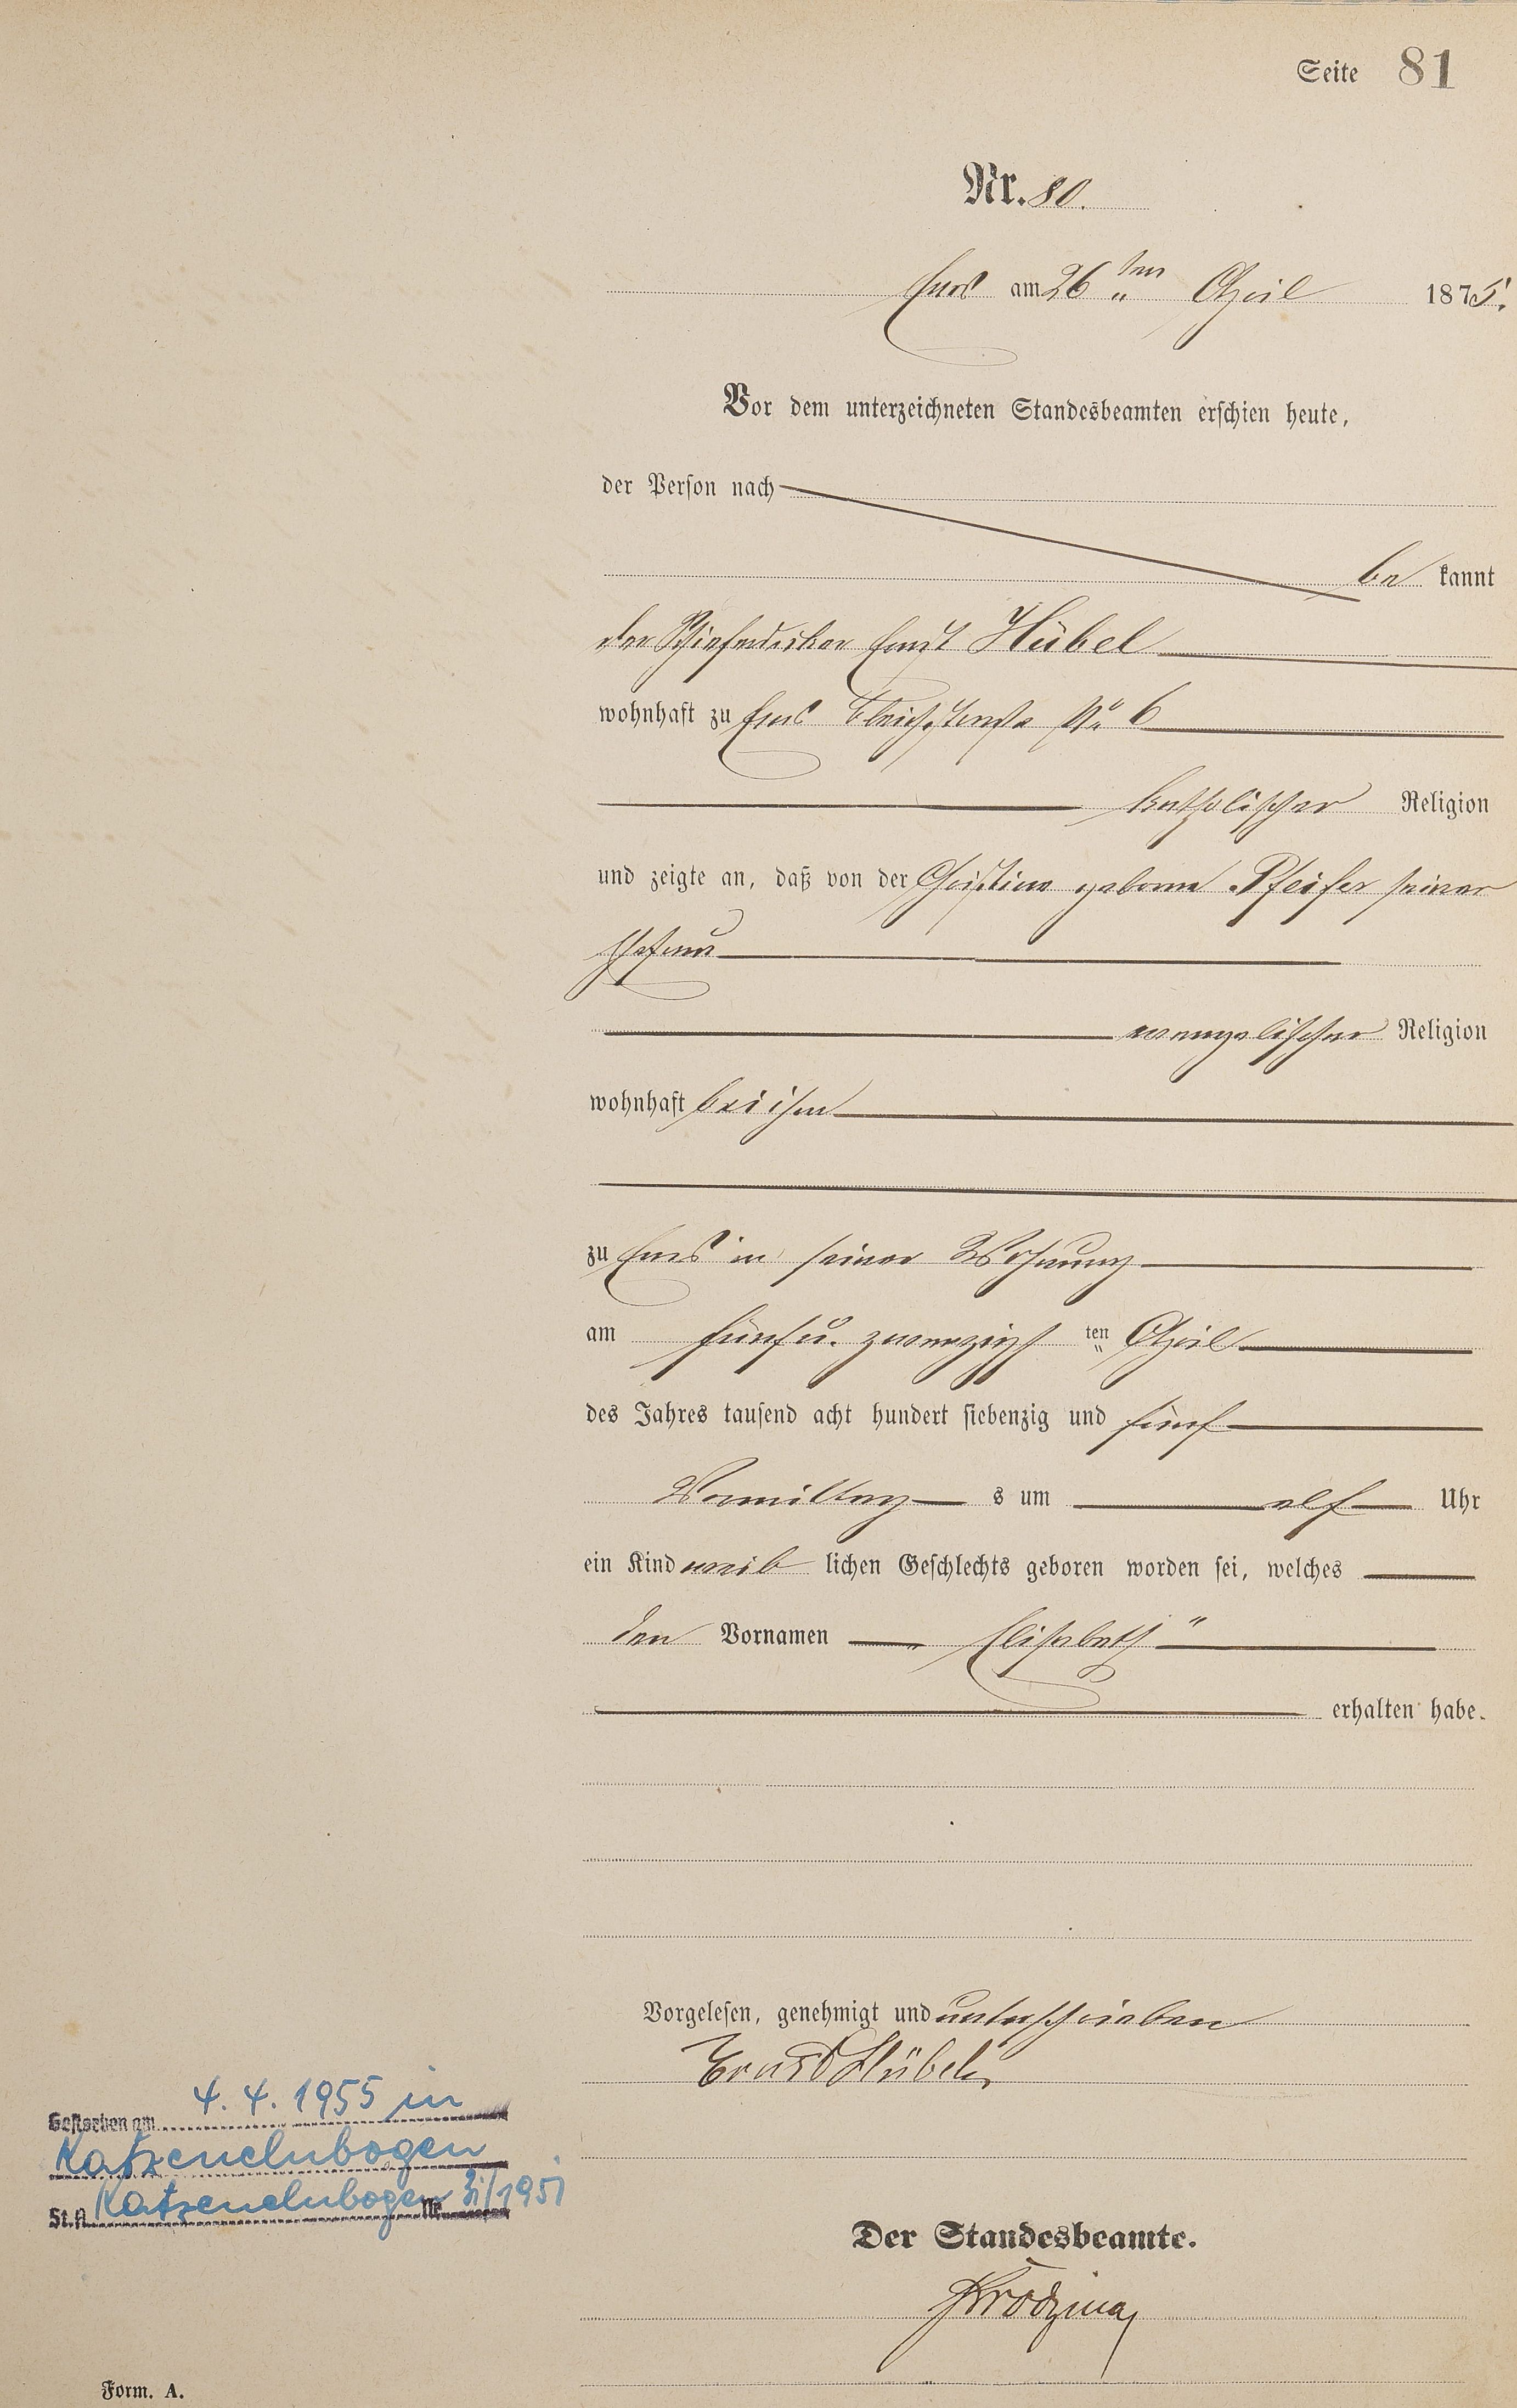 Seite 81
Nr. 80.
Ems am 26ten April 1875.
Vor dem unterzeichneten Standesbeamten erschien heute,
der Person nach
be kannt
der Schieferdecker Ernst Hübel
wohnhaft zu Ems No 6
katholischer Religion
und zeigte an, daß von der Christine geborne Pfeifer seiner
Ehefrau
evangelischer Religion
wohnhaft bei ihm
zu Ems in seiner Wohnung
am fünf u. zwanzigsten April
des Jahres tausend acht hundert siebenzig und fünf
Vormittags um elf Uhr
ein Kind weiblichen Geschlechts geboren worden sei, welches
den Vornamen „Elisabeth"
erhalten habe.
Vorgelesen, genehmigt und unterschrieben
Ernst Hübel
Gestorben am 4. 4. 1955 in
Katzenelnbogen
St.A. Katzenelnbogen Nr.
Der Standesbeamte.
Form. A.